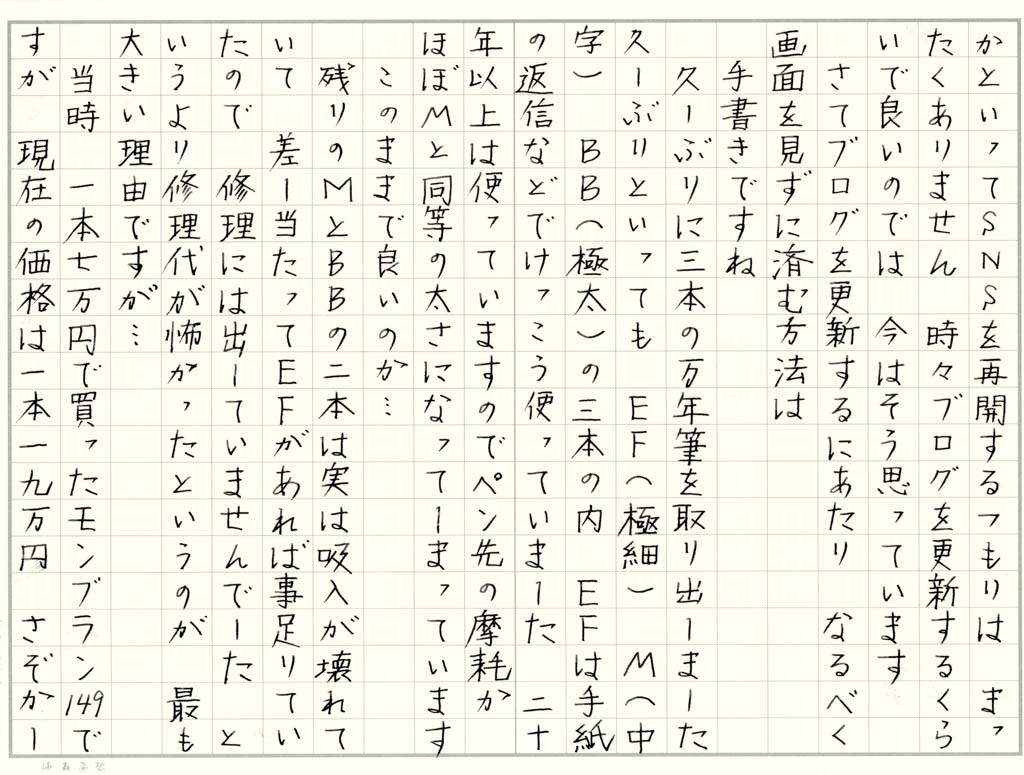 かといってSNSを再開するつもりは　まっ
たくありません　時々ブログを更新するくら
いで良いのでは　今はそう思っています
さてブログを更新するにあたり　なるべく
画面を見ずに済む方法は
手書きですね
久しぶりに三本の万年筆を取り出しました
久しぶりといっても　EF（極細）　M（中
字）　BB（極太）の三本の内　EFは手紙
の返信などでけっこう使っていました　二十
年以上は使っていますのでペン先の摩耗か
ほぼMと同等の太さになってしまっています
このままで良いのか…
残りのMとBBの二本は実は吸入が壊れて
いて　差し当たってEFがあれば事足りてい
たので　修理には出していませんでした　と
いうより修理代が怖かったというのが　最も
大きい理由ですが…
当時　一本七万円で買ったモンブラン149で
すが　現在の価格は一本一九万円　さぞかし